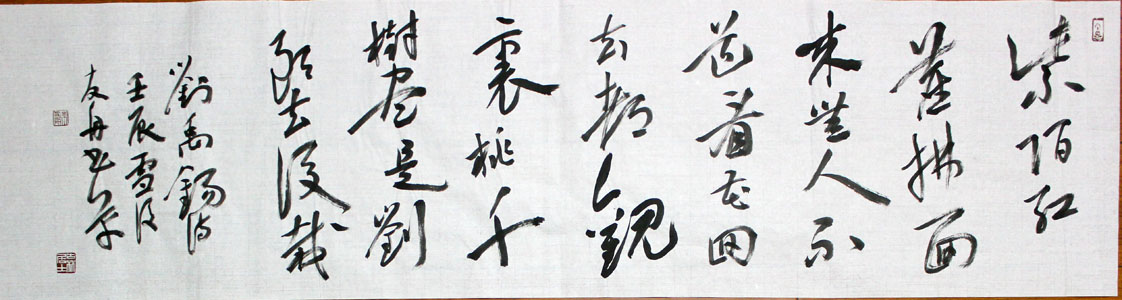 紫陌紅
塵拂面
來無人不
道看花回
玄都觀
裏桃千
樹盡是劉
郎去後栽
劉禹錫詩
壬辰雪後
友丹書